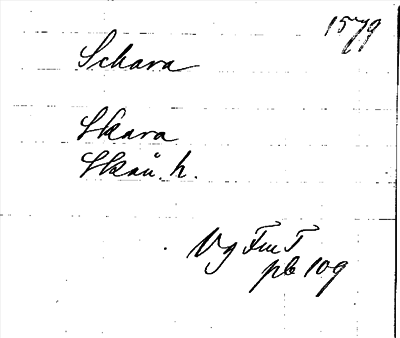 1579
Schara
Skara
Skån. h.
Vg FmT
pb 109